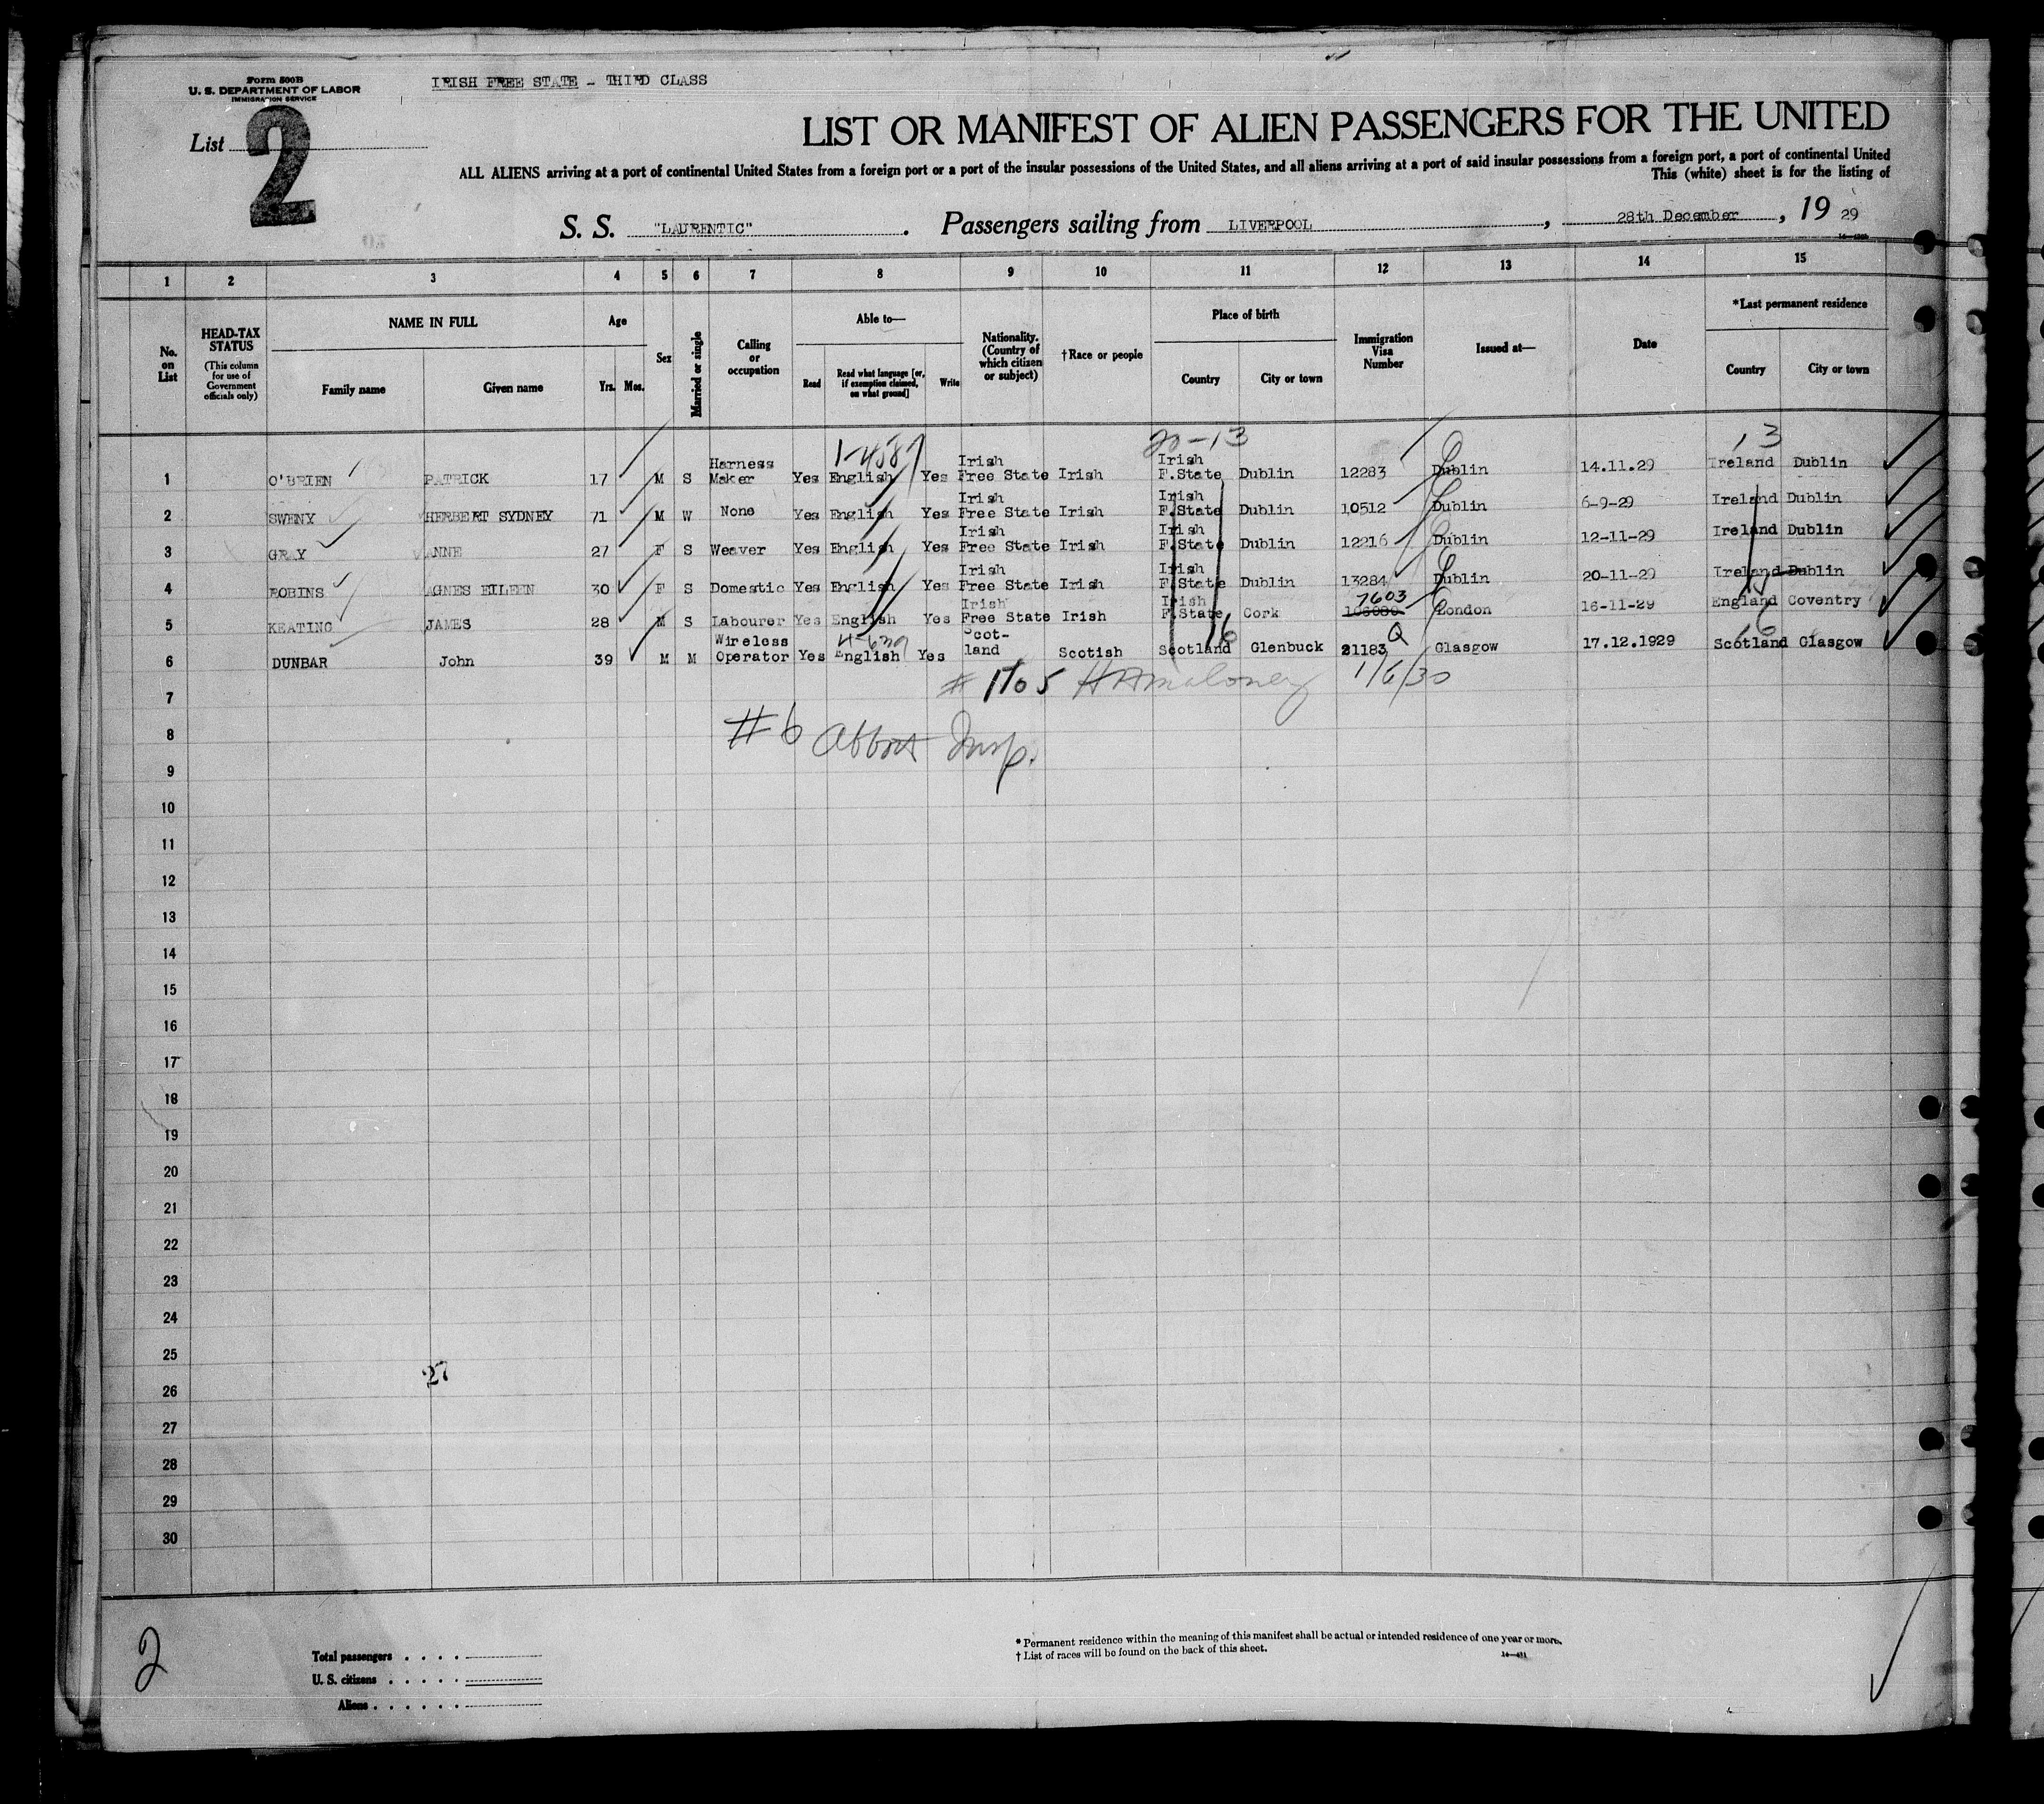 Form 500B
U. S. DEPARTMENT OF LABOR
IMMIGRATION SERVICE
IRISH FREE STATE - THIRD CLASS
List 2
LIST OR MANIFEST OF ALIEN PASSENGERS FOR THE UNITED
ALL ALIENS arriving at a port of continental United States from a foreign port or a port of the insular possessions of the United States, and all aliens arriving at a port of said insular possessions from a foreign port, a port of continental United
This (white) sheet is for the listing of
S. S. "LAURENTIC". Passengers sailing from LIVERPOOL, 28th December, 19 29
1 2 3 4 5 6 7 8 9 10 11 12 13 14 15
No. on List
HEAD-TAX STATUS (This column for use of Government officials only)
NAME IN FULL
Family name Given name
Age
Yrs. Mos.
Sex
Married or single
Calling or occupation
Able to—
Read Read what language [or, if exemption claimed, on what ground] Write
Nationality. (Country of which citizen or subject)
†Race or people
Place of birth
Country City or town
Immigration Visa Number
Issued at—
Date
*Last permanent residence
Country City or town
20-13 13
1 O'BRIEN PATRICK 17 M S Harness Maker Yes English Yes Irish Free State Irish Irish F.State Dublin 12283 Dublin 14.11.29 Ireland Dublin
2 SWENY HERBERT SYDNEY 71 M W None Yes English Yes Irish Free State Irish Irish F.State Dublin 10512 Dublin 6-9-29 Ireland Dublin
3 GRAY ANNE 27 F S Weaver Yes English Yes Irish Free State Irish Irish F.State Dublin 12216 Dublin 12-11-29 Ireland Dublin
4 ROBINS AGNES EILEEN 30 F S Domestic Yes English Yes Irish Free State Irish Irish F.State Dublin 13284 Dublin 20-11-29 Ireland Dublin
7603
5 KEATING JAMES 28 M S Labourer Yes English Yes Irish Free State Irish Irish F.State Cork London 16-11-29 England Coventry
6 DUNBAR John 39 M M Wireless Operator Yes English Yes Scot-land Scotish Scotland Glenbuck 21183 Q Glasgow 17.12.1929 Scotland Glasgow
7
# 1 to 5 Maloney 1/6/30
8
#6 Abbott Insp.
9
10
11
12
13
14
15
16
17
18
19
20
21
22
23
24
25
27
26
27
28
29
30
2
Total passengers . . . .
U. S. citizens . . . . .
Aliens . . . . . .
* Permanent residence within the meaning of this manifest shall be actual or intended residence of one year or more.
† List of races will be found on the back of this sheet.